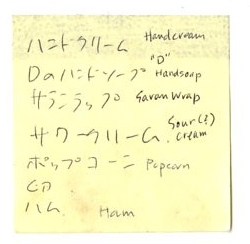 ハンドクリーム Handcream
"D"
Daハンドソープ Handsoap
サランラップ Saran Wrap
サワークリーム Sour(?) Cream
ポップコーン Popcorn
CD
ハム Ham